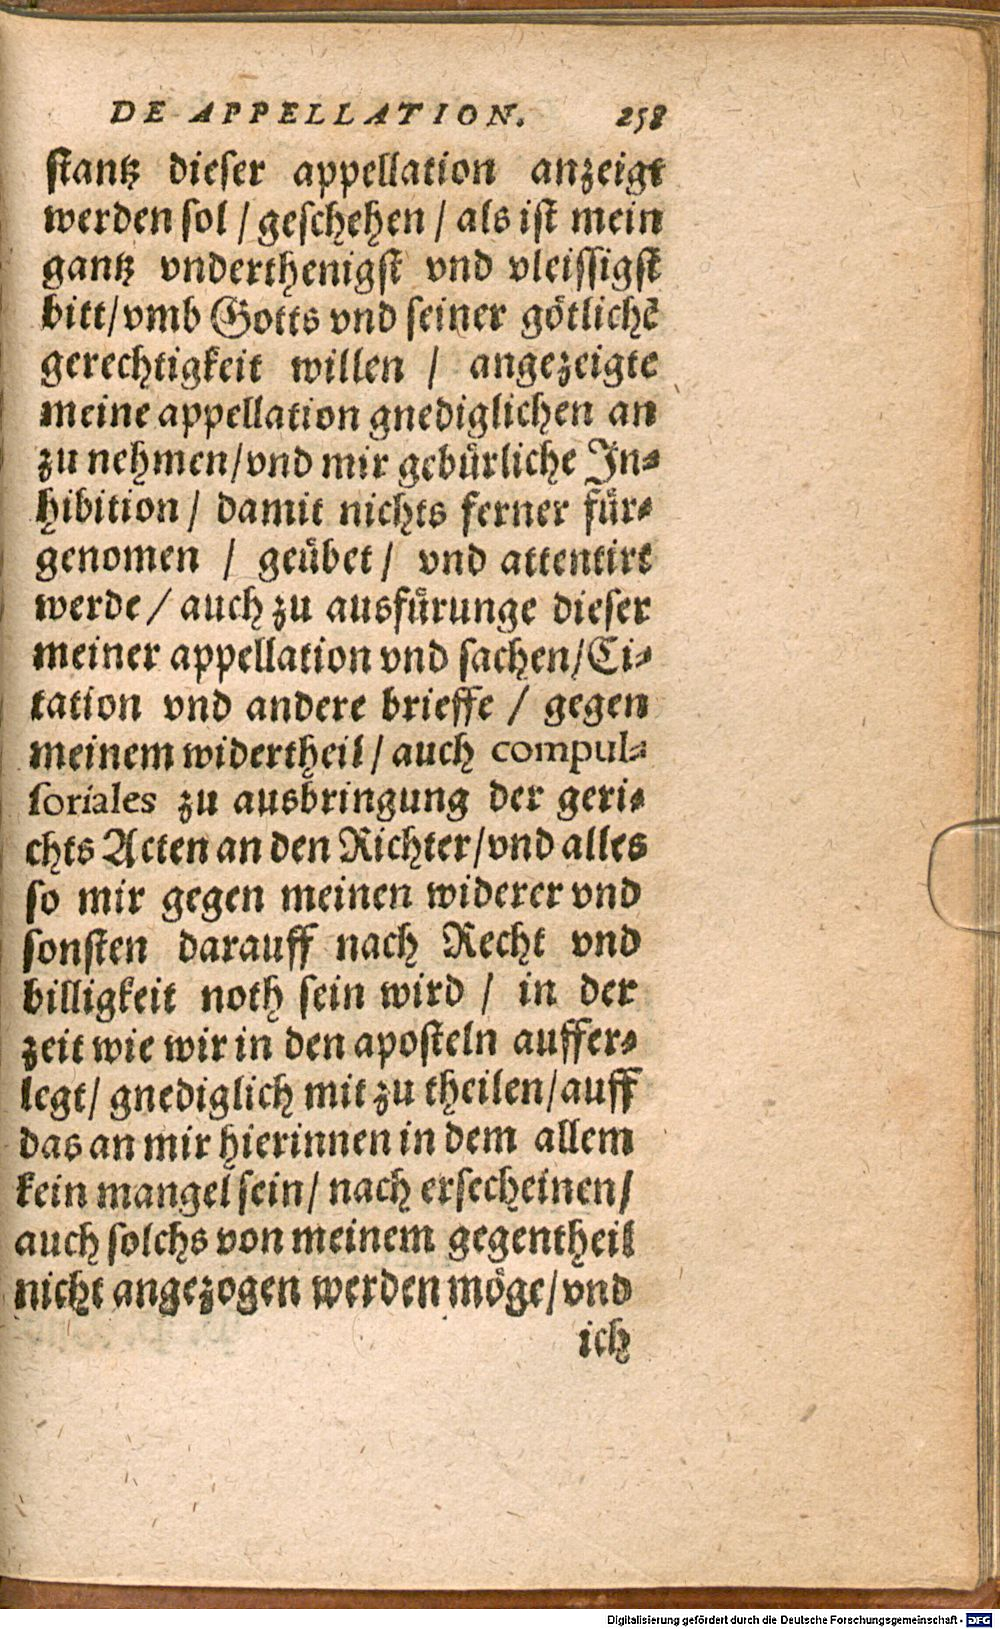 DE APPELLATION. 258
ſtantz dieſer appellation anzeigt
werden ſol / geſchehen / als iſt mein
gantz vnderthenigſt vnd vleiſſigſt
bitt/vmb Gotts vnd ſeiner gôtlichē
gerechtigkeit willen / angezeigte
meine appellation gnediglichen an
zu nehmen/vnd mir gebuͤrliche In⸗
hibition / damit nichts ferner fuͤr⸗
genomen / geuͤbet / vnd attentirt
werde / auch zu ausfuͤrunge dieſer
meiner appellation vnd ſachen/Ci⸗
tation vnd andere brieffe / gegen
meinem widertheil / auch compul⸗
ſoriales zu ausbringung der geri⸗
chts Acten an den Richter/vnd alles
ſo mir gegen meinen widerer vnd
ſonſten darauff nach Recht vnd
billigkeit noth ſein wird / in der
zeit wie wir in den apoſteln auffer⸗
legt/ gnediglich mit zu theilen/auff
das an mir hierinnen in dem allem
kein mangel ſein/ nach erſecheinen/
auch ſolchs von meinem gegentheil
nicht angezogen werden moͤge/vnd
ich
Digitalisierung gefördert durch die Deutsche Forschungsgemeinschaft - DFG